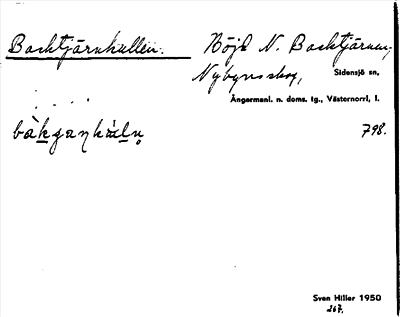 Backtjärnkullen.
Höjd N. Backtjärnen,
Nybynsskog, Sidensjö sn,
Ångermanl. n. doms. tg., Västernorrl, l.
798.
Sven Hiller 1950
267.